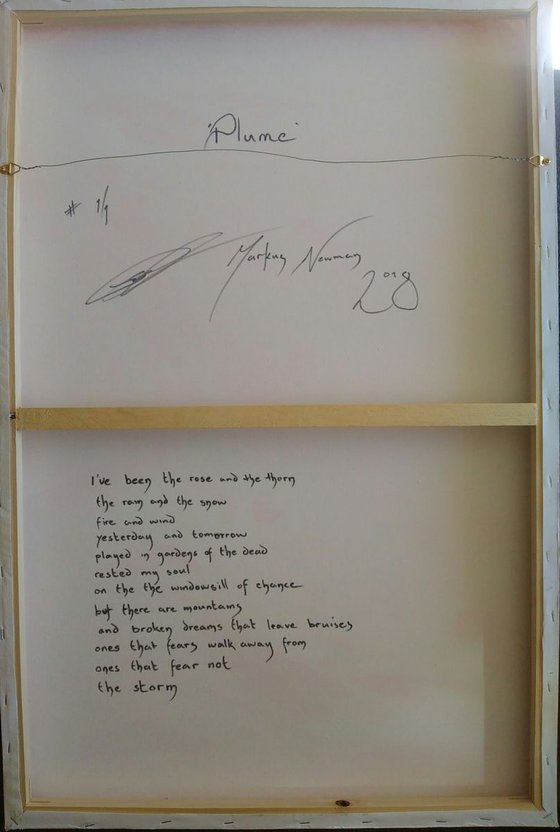 'Plume'
# 1/1
Markus Newman
2018
I've been the rose and the thorn
the rain and the snow
fire and wind
yesterday and tomorrow
played in gardens of the dead
rested my soul
on the the windowsill of chance
but there are mountains
and broken dreams that leave bruises
ones that fears walk away from
ones that fear not
the storm